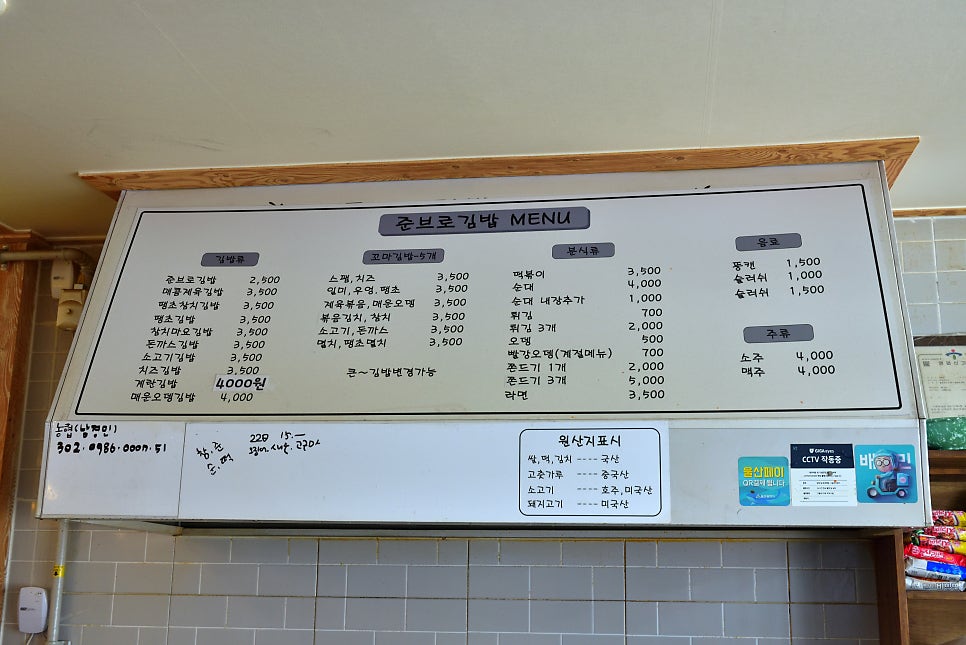 준브로김밥 MENU
김밥류
준브로김밥 2,500
매콤제육김밥 3,500
땡초참치김밥 3,500
땡초김밥 3,500
참치마요김밥 3,500
돈까스김밥 3,500
소고기김밥 3,500
치즈김밥 3,500
계란김밥 4000원
매운오뎅김밥 4,000
꼬마김밥-5개
스팸,치즈 3,500
일미,우엉,땡초 3,500
제육볶음,매운오뎅 3,500
볶음김치,참치 3,500
소고기,돈까스 3,500
멸치,땡초멸치 3,500
큰~김밥변경가능
분식류
떡볶이 3,500
순대 4,000
순대 내장추가 1,000
튀김 700
튀김 3개 2,000
오뎅 500
빨강오뎅(계절메뉴) 700
쫀드기 1개 2,000
쫀드기 3개 5,000
라면 3,500
음료
뚱캔 1,500
슬러쉬 1,000
슬러쉬 1,500
주류
소주 4,000
맥주 4,000
농협(남경민)
원산지표시
쌀,떡,김치 ---- 국산
고춧가루 ---- 중국산
소고기 ---- 호주,미국산
돼지고기 ---- 미국산
울산페이
QR결제 됩니다
GiGAeyes
CCTV 작동중